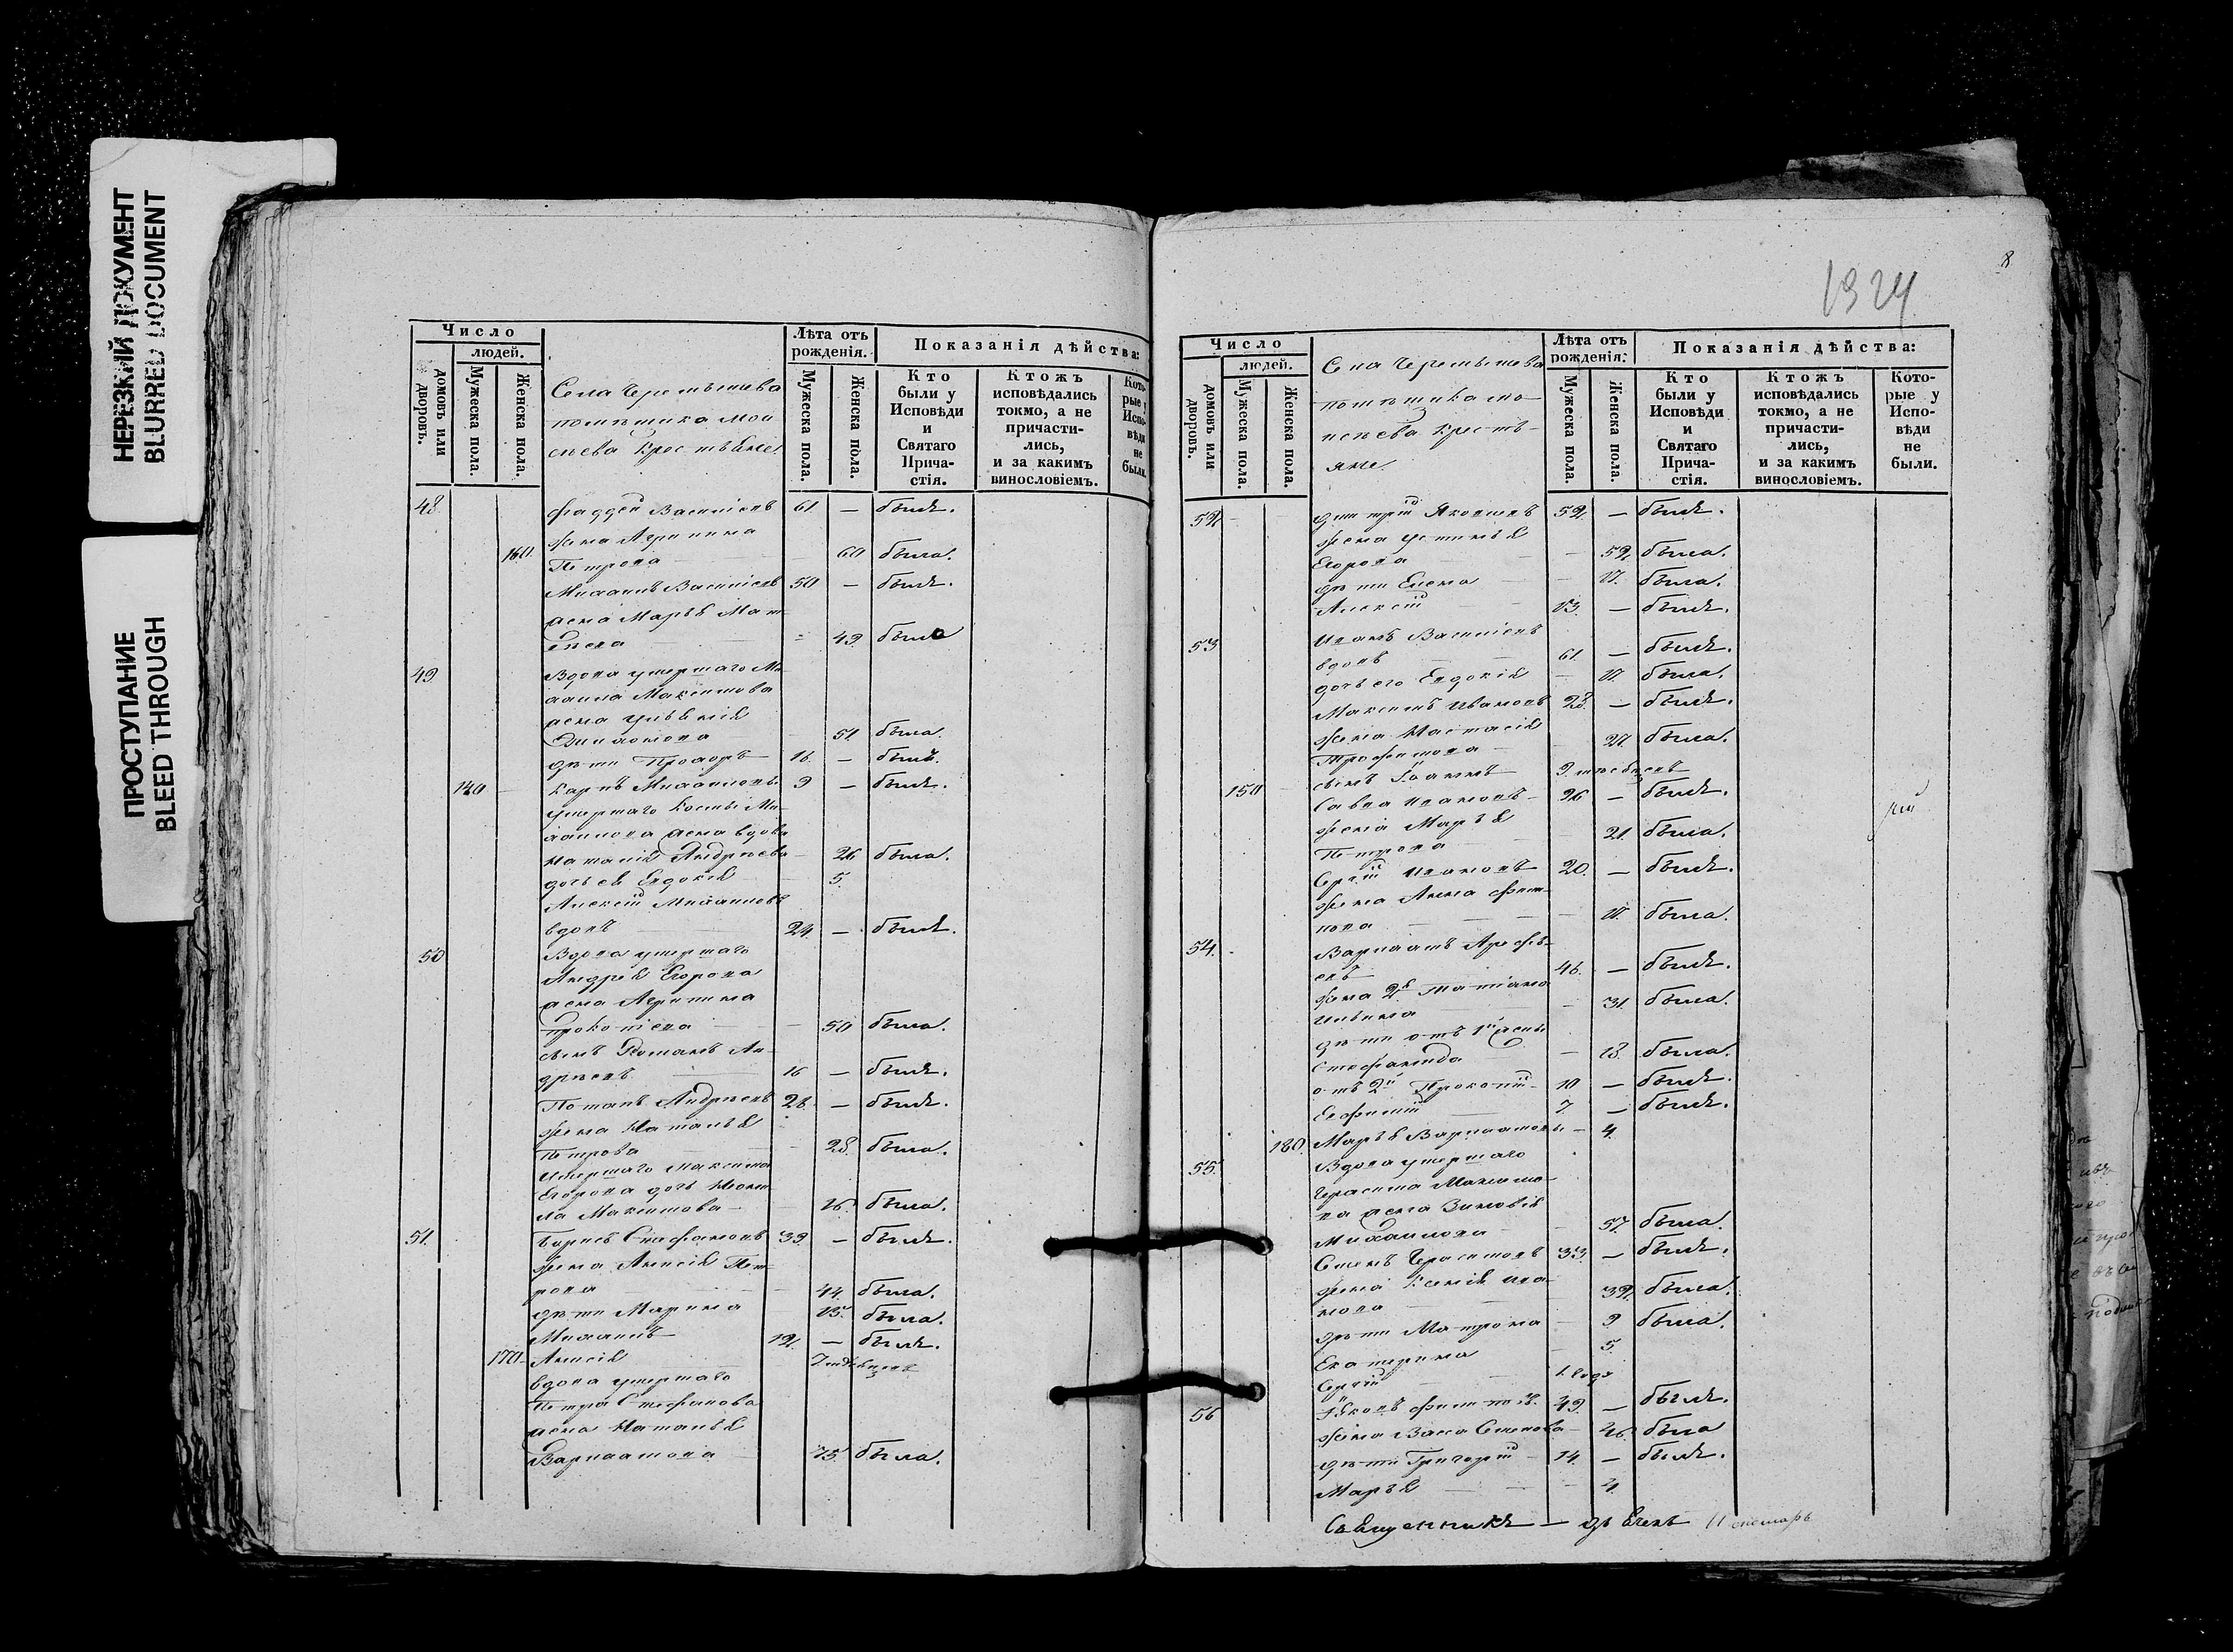 НЕРЕЗКИЙ ДОКУМЕНТ
BLURRED DOCUMENT
ПРОСТУПАНИЕ
BLEED THROUGH
Число
людей.
домовъ или дворовъ.
Мужеска пола.
Женска пола.
Лѣта отъ рожденія.
Мужеска пола.
Женска пола.
Показанія дѣйства:
Кто были у Исповѣди и Святаго Прича-стія.
Ктожъ исповѣдались токмо, а не причасти-лись, и за какимъ винословіемъ.
Кото-рые у Испо-вѣди не были.
48 Фаддей Васильевъ 61 — былъ.
жена Агрипина
160. Петрова 60 была.
Михаилъ Васильевъ 50 — былъ.
жена Марья Мат-
вѣева 49 была
49 Вдова умершаго Ми-
хаила Максимова
жена
51 была.
дѣти Прохоръ 16. — былъ.
140 Карпъ Михайловъ 9 — былъ.
умершаго Козмы Ми-
хайлова жена вдова
Наталія Андреева 26 была.
дочь ея Евдокія 5.
Алексій Михайловъ
вдовъ 24 — былъ.
50 Вдова умершаго
Андрея Егорова
жена Агрипина
Прокопіева 50 была.
сынъ Романъ Ан-
дреевъ 16 — былъ.
Потапъ Андреевъ 28. — былъ.
жена Наталья
Петрова 28. была.
Умершаго Максима
Егорова дочь
Максимова 16. была.
51. Борисъ Стефановъ 39. — былъ.
жена Анисія Пет-
рова 44. была.
дѣти Марина 15. была.
Михаилъ 12. — былъ.
170. Анисія
вдова умершаго
Петра Стефанова
жена Наталья
Варлаамова 75. была.
8
1324
Число
людей.
домовъ или дворовъ.
Мужеска пола.
Женска пола.
Лѣта отъ рожденія:
Мужеска пола.
Женска пола.
Показанія дѣйства:
Кто были у Исповѣди и Святаго Прича-стія.
Ктожъ исповѣдались токмо, а не причасти-лись, и за какимъ винословіемъ.
Кото-рые у Испо-вѣди не были.
52 Дмитрій Яковлевъ 52. — былъ.
жена Устинья
Егорова 52. была.
дѣти Елена 17. была.
Алексій 13. — былъ.
53 Иванъ Васильевъ
вдовъ 61. — былъ.
дочь его Евдокія 17. была.
Максимъ Ивановъ 28. — былъ.
жена Настасія
Трофимова 27. была.
сынъ Іоаннъ
150 Савва Ивановъ 26 — былъ.
жена Марья
Петрова 21. была.
Сергій Ивановъ 20. — былъ.
жена Анна Филип-
пова была.
54. Варлаамъ Арефь-
евъ 46. — былъ.
жена 2я Татіана
Ильина 31. была.
дѣти отъ 1й жены
Стефанида 18. была.
отъ 2й Прокопій 10 — былъ.
Евфимій 7. — былъ.
180. Марья Варлаамова 4.
55. Вдова умершаго
Герасима Максимо-
ва жена Зиновія
Михайлова 57. была.
Семенъ Герасимовъ 33. — былъ.
жена Ксенія Ива-
нова 32. была.
дѣти Матрона 9 была.
Екатерина 5.
Сергій 1. годъ
56 Яковъ 49. — былъ.
жена Семенова 46. была
дѣти Григорій 14. — былъ.
Марья 4.
Священникъ — дьячекъ Пономарь